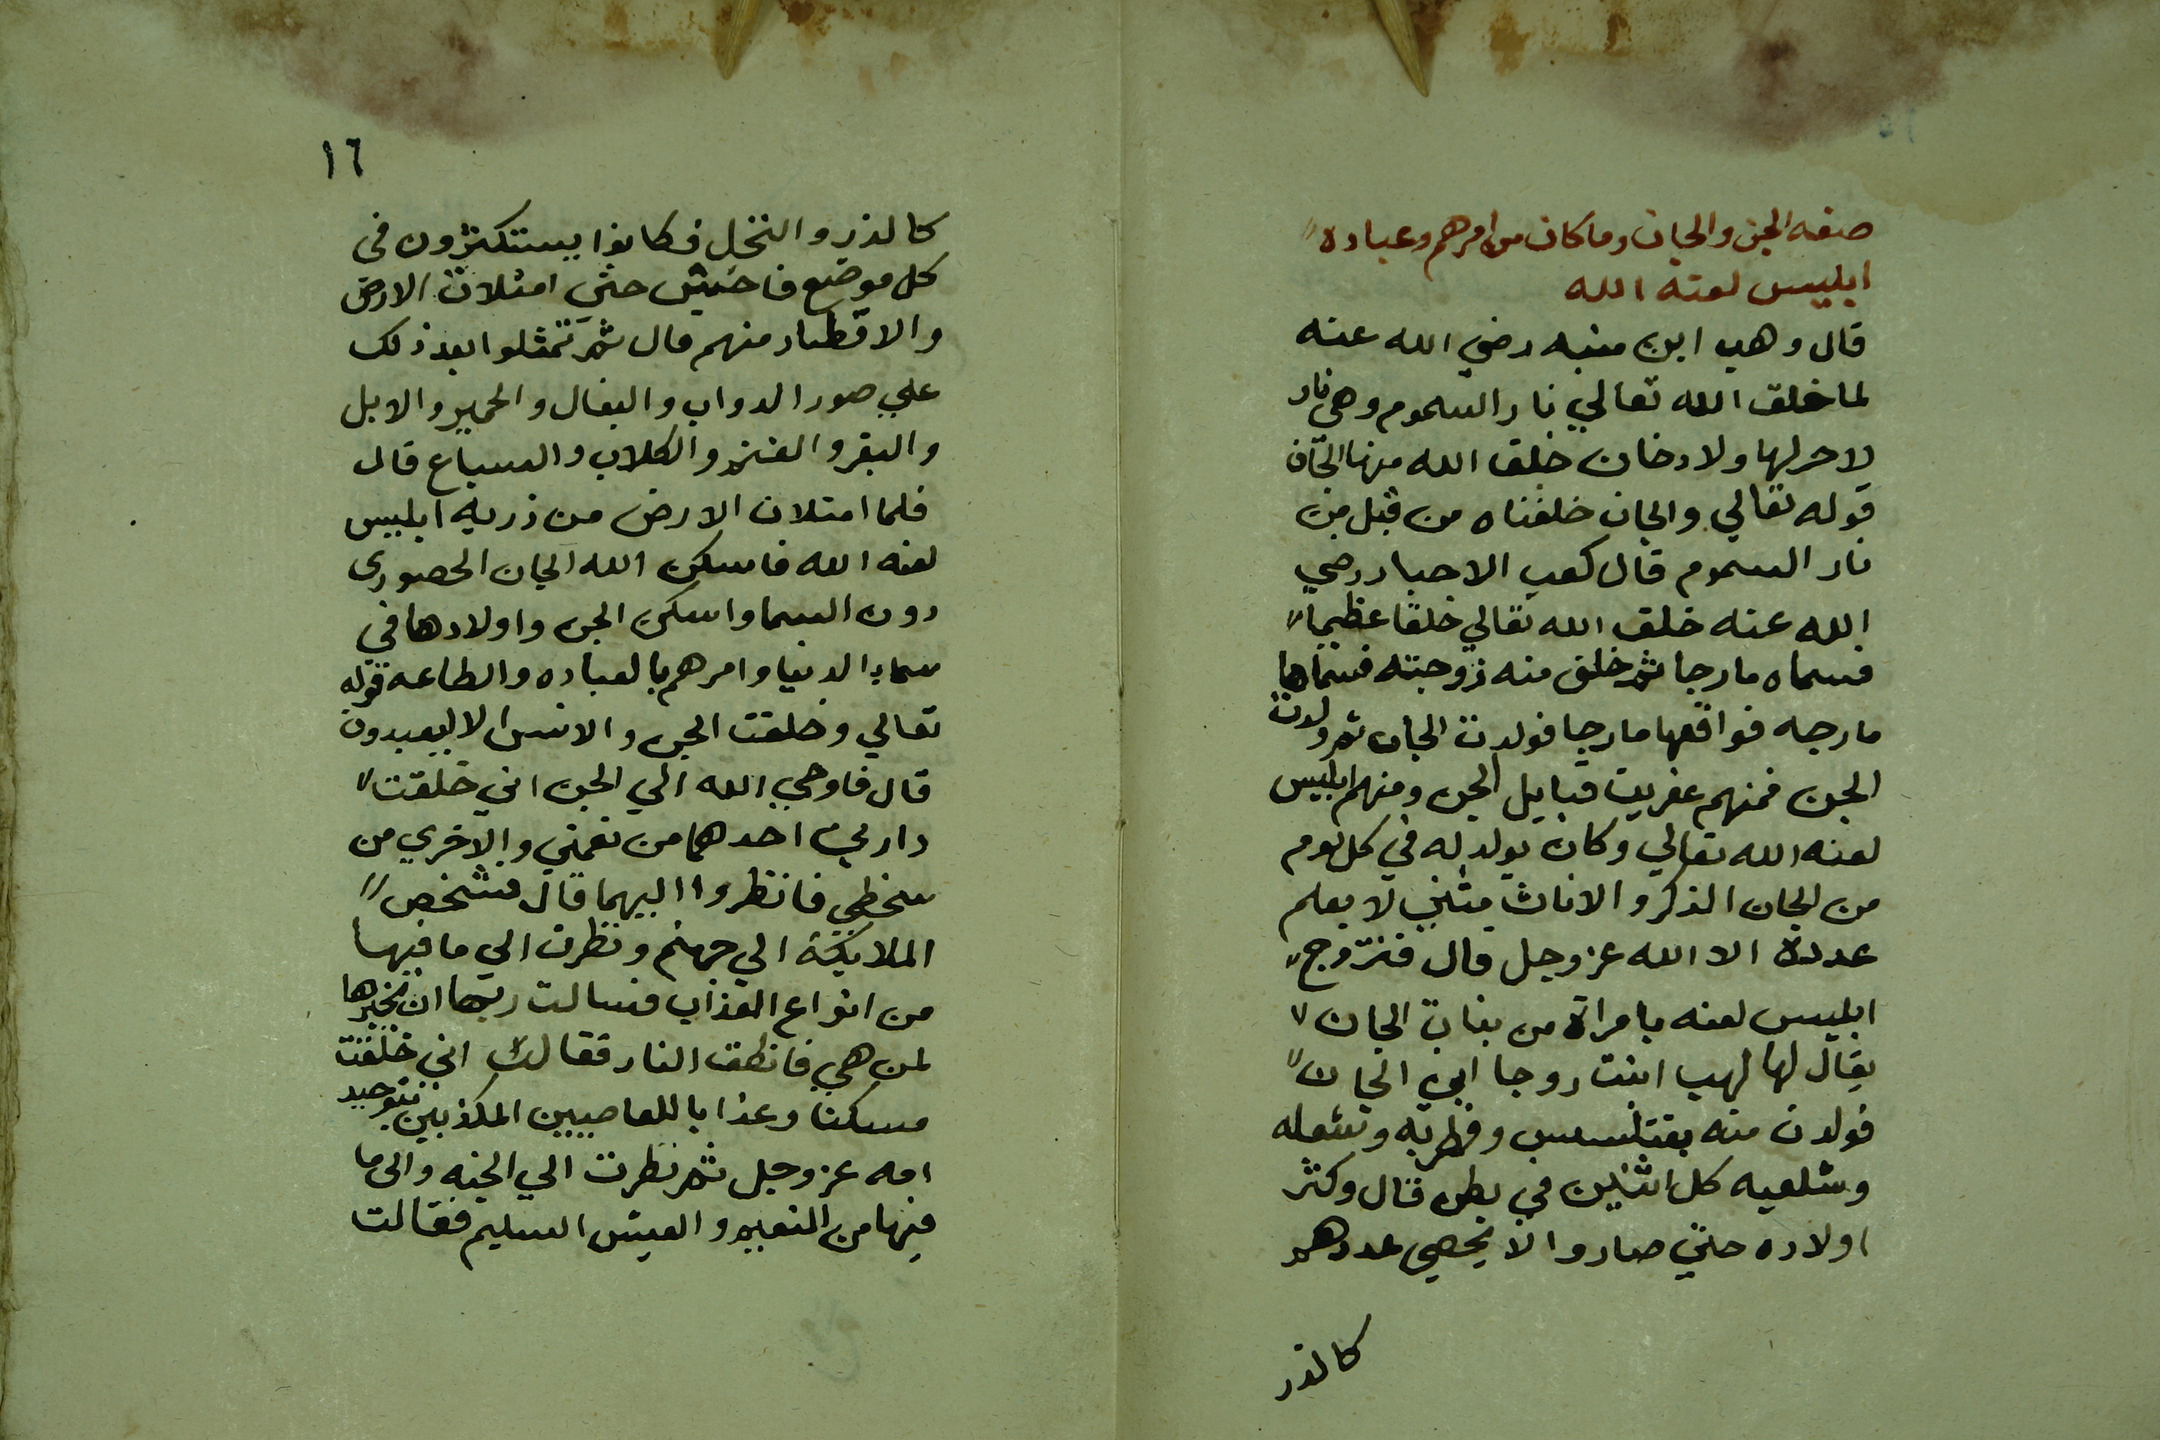 صفه الجن والجان وما كان من امرهم وعباده
ابليس لعنه الله
قال وهب ابن منبه رضي الله عنه
لما خلق الله تعالي نار السموم وهي نار
لا حر لها ولا دخان خلق الله منها الجان
قوله تعالي والجان خلقناه من قبل من
نار السموم قال كعب الاحبار رضي
الله عنه خلق الله تعالي خلقا عظيما
فسماه مارجا ثم خلق منه زوجته فسماها
مارجه فواقعها مارجا فولدت الجان ثم ولدت
الجن فمنهم عفريت قبايل الجن ومنهم ابليس
لعنه الله تعالي وكان يولد له في كل يوم
من الجان الذكر والاناث مثني لا يعلم
عدده الا الله عز وجل قال فتزوج
ابليس لعنه بامراة من بنات الجان
يقال لها لهب ابنت روحا ابن الجان
فولدت منه وفطريه وشعله
وشلعيه كل اثنين في بطن قال وكثر
اولاده حتي صاروا لا يحصي عددهم
كالذر
١٦
كالذر والنخل فكانوا يستكثرون في
كل موضع فاحش حتي امتلات الارض
والاقطار منهم قال ثم تمثلوا بعد ذلك
علي صور الدواب والبغال والحمير والابل
والبقر والغنم والكلاب والسباع قال
فلما امتلات الارض من ذريه ابليس
لعنه الله فاسكن الله الجان الحصوري
دون السما واسكن الجن واولادها في
سماء الدنيا وامرهم بالعباده والطاعه قوله
تعالي وخلقت الجن والانس الا ليعبدون
قال فاوحي الله الي الجن اني خلقت
دارين احدهما من نعمتي والاخري من
سخطي فانظروا اليهما قال فشخص
الملايكة الي جهنم ونظرت الي ما فيها
من انواع العذاب فسالت ربها ان يخبرها
لمن هي فانطق النار فقالت اني خلقت
مسكنا وعذابا للعاصيين المكذبين بتوحيد
الله عز وجل ثم نظرت الي الجنه والي ما
فيها من النعيم والعيش السليم فقالت